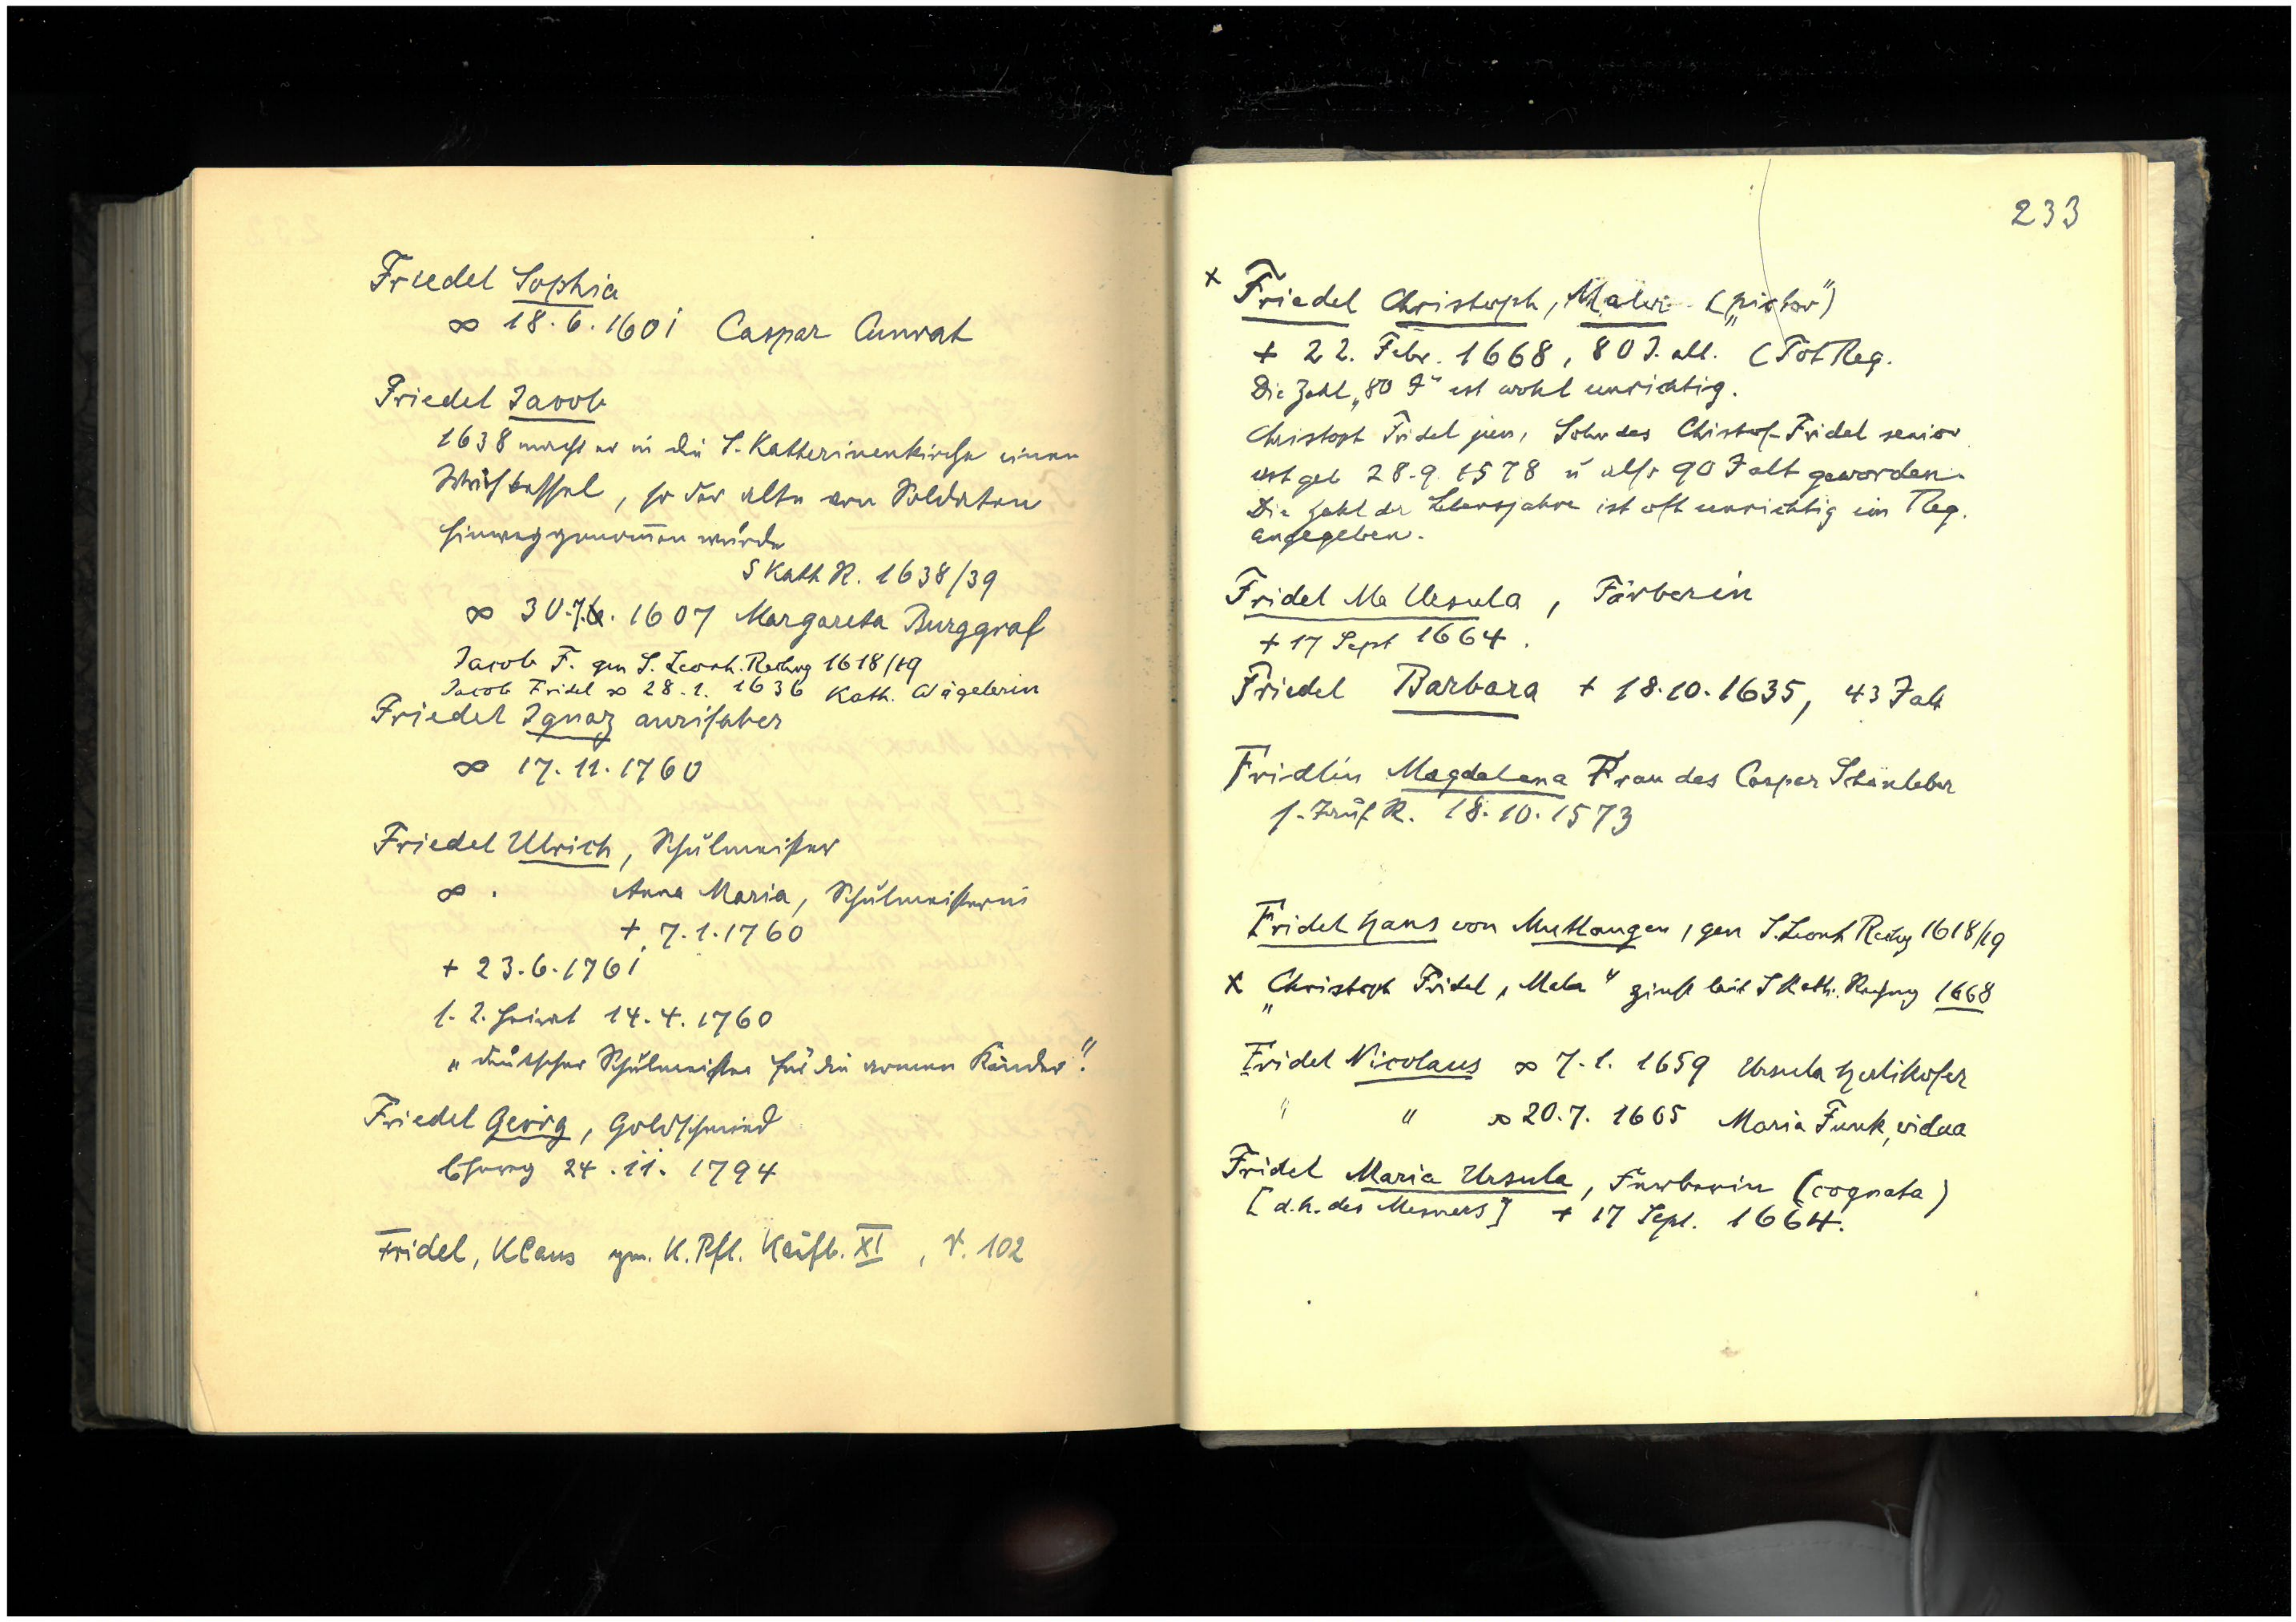 Friedel Sophia
∞ 18.6.1601 Caspar Cunrat
Friedel Jacob
1638 macht er in die S. Katherinenkirche einen
Weihkessel, so der alte von Soldaten
hinweggenom̄en wurde
S Kath R. 1638/39
∞ 30.7. 1607 Margareta Burggraf
Jacob F. gen S. Leonh. Rechng 1618/19
Jacob Fridel ∞ 28.1. 1636 Kath. Nägelerin
Friedel Ignaz aurifaber
∞ 17.11.1760
Friedel Ulrich, Schulmeister
∞ . Anna Maria, Schulmeisterin
+ 7.1.1760
+ 23.6.1761
s. 2. Heirat 14.4.1760
„deutscher Schulmeister für die armen Kinder"
Friedel Georg, Goldschmied
24.11.1794
Fridel, Klaus gen. K. Pfl. Kaufb. XI, r. 102
233
x Friedel Christoph, Maler („pictor")
+ 22. Febr. 1668, 80 J. alt. (Tot Reg.
Die Zahl „80 J" ist wohl unrichtig.
Christoph Fridel jun, Sohn des Christof Fridel senior
ist geb 28.9.1578 u also 90 J alt geworden.
Die Zahl der Lebensjahre ist oft unrichtig im Reg.
angegeben.
Fridel Ma Ursula, Färberin
+ 17 Sept 1664.
Friedel Barbara + 18.10.1635, 43 J alt
Fridlin Magdalena Frau des Caspar Schönleber
s. R. 18.10.1573
Fridel Hans von Mutlangen, gen S. Leonh Rechg 1618/19
x „Christoph Fridel, Maler" zinst laut S Kath. Rechnung 1668
Fridel Nicolaus ∞ 7.1. 1659 Ursula Herlikofer
" " ∞ 20.7. 1665 Maria Funk, vidua
Fridel Maria Ursula, Färberin (cognata)
[d.h. des Mesners] + 17 Sept. 1664.